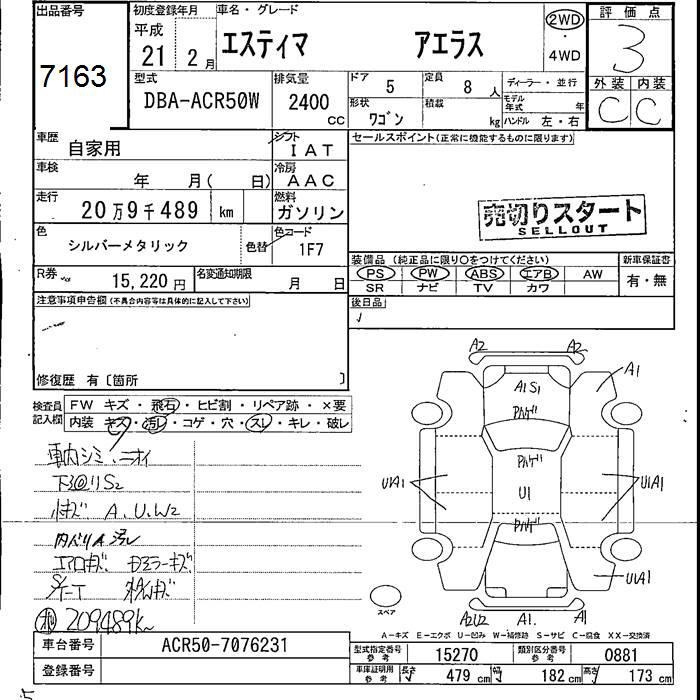 出品番号
7163
初度登録年月
平成
21 2月
車名・グレード
エスティマ アエラス
2WD
・
4WD
評価点
3
外装 内装
C C
型式
DBA-ACR50W
排気量
2400
CC
ドア
5
定員
8 人
形状
ワゴン
積載
kg
ディーラー・並行
モデル年式 年
ハンドル 左・右
車歴
自家用
シフト
IAT
車検
年 月( 日)
冷房
AAC
走行
20万9千489 km
燃料
ガソリン
色
シルバーメタリック
色替
色コード
1F7
R券
15,220円
名変通知期限
月 日
セールスポイント(正常に機能するものに限ります)
売切りスタート
SELLOUT
装備品 (純正品に限り○をつけてください)
PS PW ABS エアB AW
SR ナビ TV カワ
新車保証書
有・無
後日品
注意事項申告欄(不具合内容等は具体的に記入して下さい)
修復歴 有〔箇所 〕
検査員記入欄
FW キズ・飛石・ヒビ割・リペア跡・×要
内装 キズ・汚レ・コゲ・穴・スレ・キレ・破レ
車内シミ、ニオイ
下廻りS2
小キズ A、U、W2
内ハリ汚レ
エアロキズ ドアミラーキズ
209489k
A2 A2
A1
A1S1
ハゲ
ハゲ
U1
ハゲ
U1A1
U1A1
U1A1
A2U2 A1. A1
スペア
A-キズ E-エクボ U-凹み W-補修跡 S-サビ C-腐食 XX-交換済
車台番号
ACR50-7076231
登録番号
型式指定番号
参考
15270
類別区分番号
参考
0881
車庫証明用
参考
長さ 479 cm 幅 182 cm 高さ 173 cm